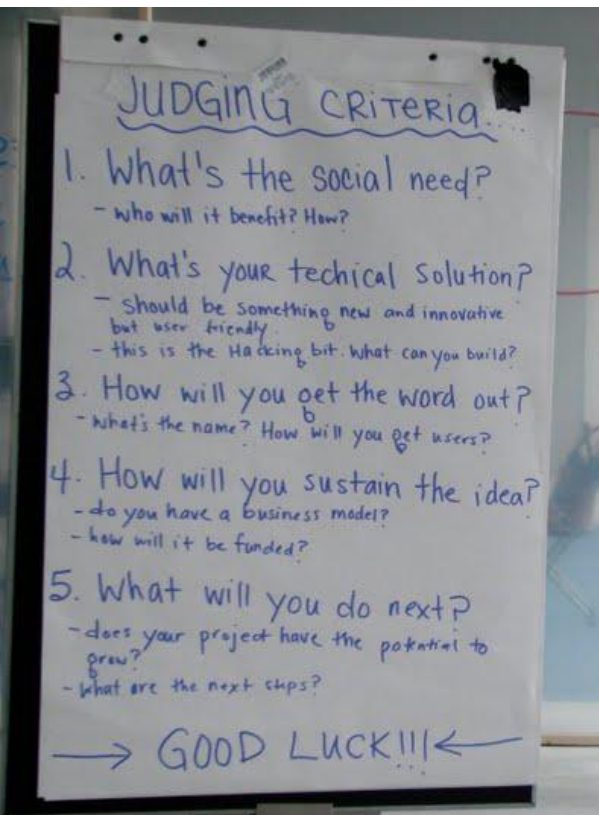 JUDGING CRITERIA....
1. What's the social need?
- who will it benefit? How?
2. What's your techical solution?
- should be something new and innovative
but user friendly.
- this is the Hacking bit. What can you build?
3. How will you get the word out?
- what's the name? How will you get users?
4. How will you sustain the idea?
- do you have a business model?
- how will it be funded?
5. What will you do next?
- does your project have the potential to
grow?
- what are the next steps?
→ GOOD LUCK!!! ←